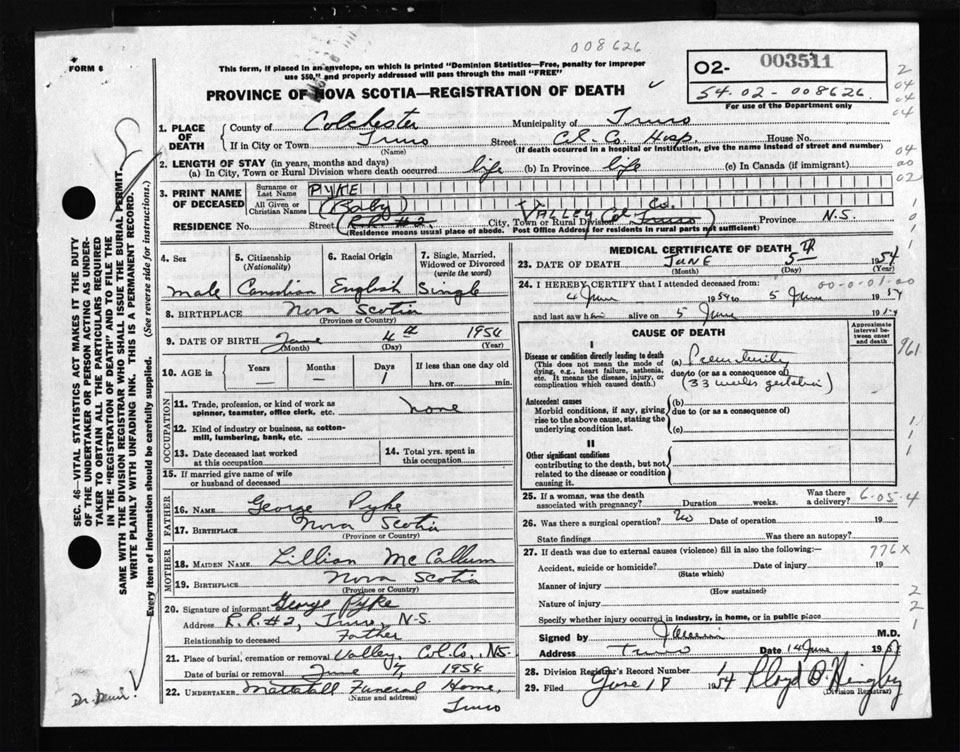 008626
FORM 6
This form, if placed in an envelope, on which is printed "Dominion Statistics—Free, penalty for improper
use $50," and properly addressed will pass through the mail "FREE"
PROVINCE OF NOVA SCOTIA—REGISTRATION OF DEATH
02- 003511
54-02-008626.
For use of the Department only
1. PLACE OF DEATH { County of Colchester Municipality of Truro
If in City or Town Truro Street Col. Co. Hosp. House No.
(Name) (If death occurred in a hospital or institution, give the name instead of street and number)
2. LENGTH OF STAY (in years, months and days)
(a) In City, Town or Rural Division where death occurred life (b) In Province life (c) In Canada (if immigrant)
3. PRINT NAME OF DECEASED { Surname or Last Name PYKE
All Given or Christian Names (Baby)
RESIDENCE No. Street (R.R. #2, City, Town or Rural Division VALLEY Col. Co. Truro) Province N.S.
(Residence means usual place of abode. Post Office Address for residents in rural parts not sufficient)
4. Sex male
5. Citizenship (Nationality) Canadian
6. Racial Origin English
7. Single, Married, Widowed or Divorced (write the word) Single
8. BIRTHPLACE Nova Scotia
(Province or Country)
9. DATE OF BIRTH June 4th 1954
(Month) (Day) (Year)
10. AGE in { Years — Months — Days 1 If less than one day old
hrs. or min.
OCCUPATION
11. Trade, profession, or kind of work as
spinner, teamster, office clerk, etc. none
12. Kind of industry or business, as cotton-
mill, lumbering, bank, etc.
13. Date deceased last worked
at this occupation
14. Total yrs. spent in
this occupation
15. If married give name of wife
or husband of deceased
FATHER
16. NAME George Pyke
17. BIRTHPLACE Nova Scotia
(Province or Country)
MOTHER
18. MAIDEN NAME Lillian McCallum
19. BIRTHPLACE Nova Scotia
(Province or Country)
20. Signature of informant George Pyke
Address R.R.#2, Truro, N.S.
Relationship to deceased Father
21. Place of burial, cremation or removal Valley, Col. Co., N.S.
Date of burial or removal June 7, 1954
22. UNDERTAKER Mattatall Funeral Home,
(Name and address)
Truro
MEDICAL CERTIFICATE OF DEATH
23. DATE OF DEATH JUNE 5TH 1954
(Month) (Day) (Year)
24. I HEREBY CERTIFY that I attended deceased from: 00-0-01-00
4 June 1954 to 5 June 1954
and last saw him alive on 5 June 1954
CAUSE OF DEATH
Approximate interval between onset and death
I
Disease or condition directly leading to death
(This does not mean the mode of
dying, e.g., heart failure, asthenia,
etc. It means the disease, injury, or
complication which caused death.)
(a) Prematurity
due to (or as a consequence of)
(33 weeks gestation)
Antecedent causes
Morbid conditions, if any, giving
rise to the above cause, stating the
underlying condition last.
(b)
due to (or as a consequence of)
(c)
II
Other significant conditions
contributing to the death, but not
related to the disease or condition
causing it.
25. If a woman, was the death
associated with pregnancy? Duration weeks. Was there a delivery? 6-05-4
26. Was there a surgical operation? No Date of operation 19
State findings Was there an autopsy?
27. If death was due to external causes (violence) fill in also the following:— 776X
Accident, suicide or homicide? Date of injury 19
(State which)
Manner of injury
(How sustained)
Nature of injury
Specify whether injury occurred in industry, in home, or in public place
Signed by M.D.
Address Truro Date 14 June 1954
28. Division Registrar's Record Number
29. Filed June 18 1954
(Division Registrar)
SEC. 46—VITAL STATISTICS ACT MAKES IT THE DUTY
OF THE UNDERTAKER OR PERSON ACTING AS UNDER-
TAKER TO OBTAIN ALL THE PARTICULARS REQUIRED
IN THE "REGISTRATION OF DEATH" AND TO FILE THE
SAME WITH THE DIVISION REGISTRAR WHO SHALL ISSUE THE BURIAL PERMIT.
WRITE PLAINLY WITH UNFADING INK. THIS IS A PERMANENT RECORD.
Every item of information should be carefully supplied. (See reverse side for instructions.)